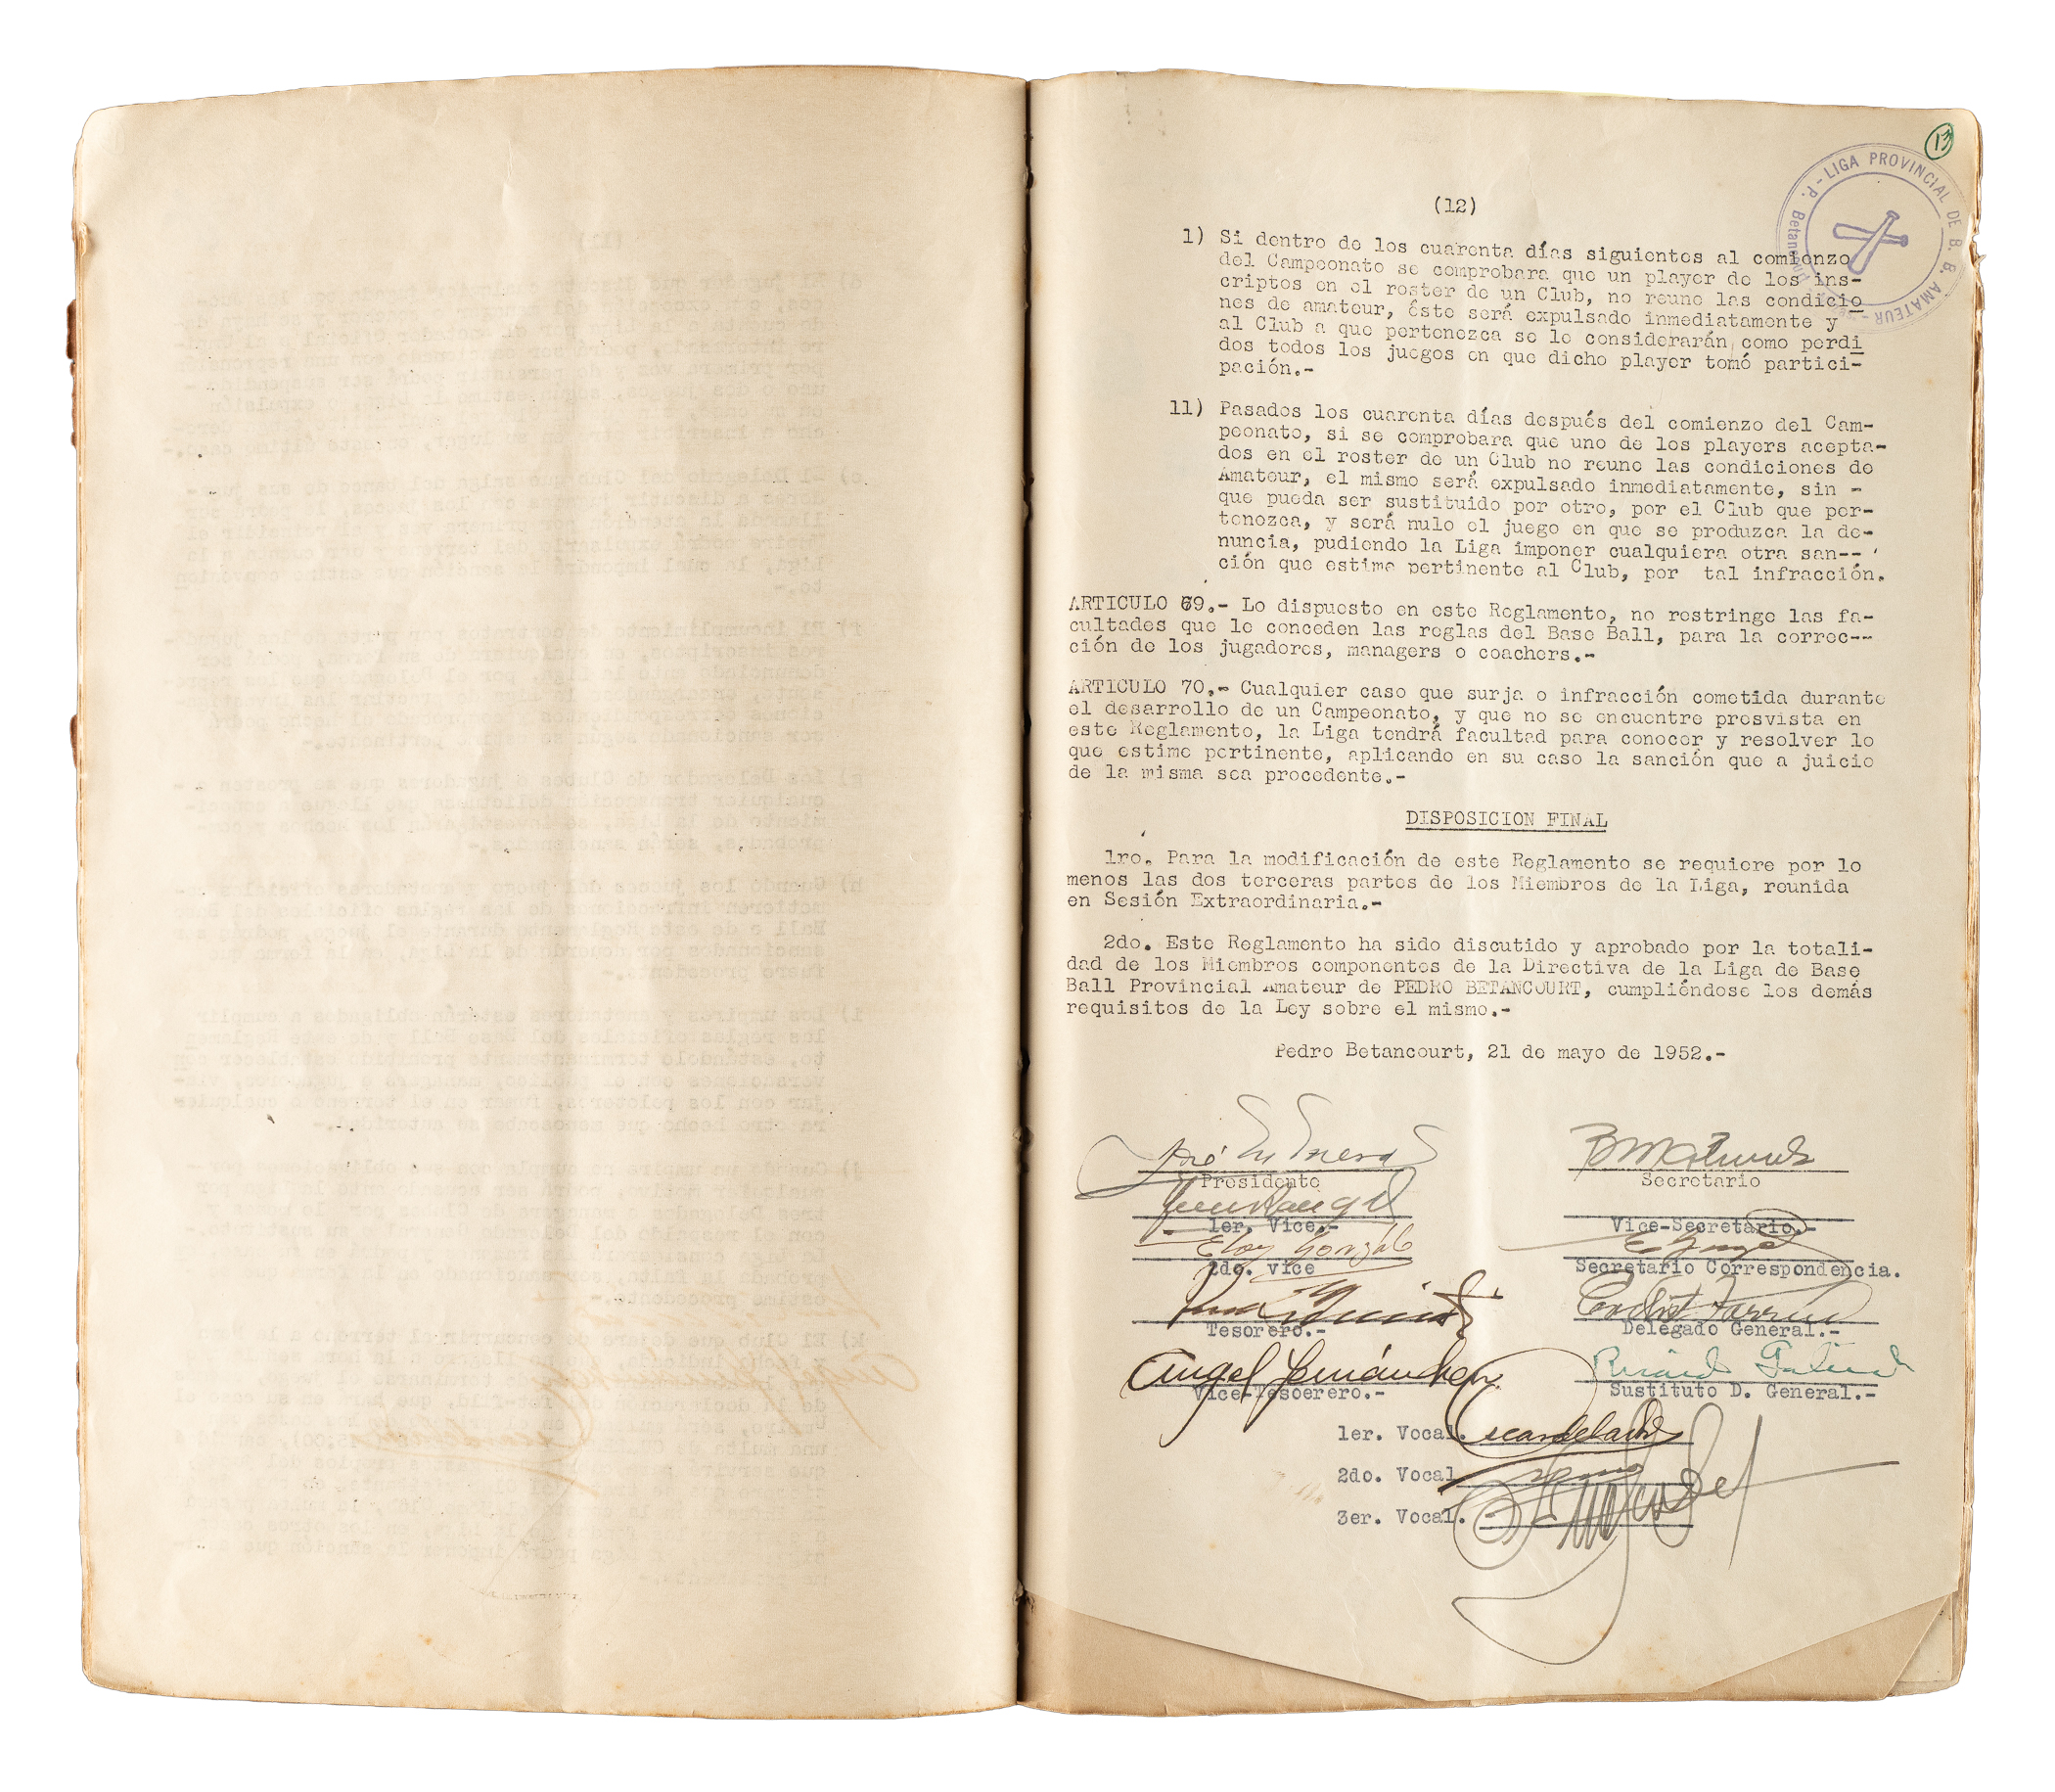 13
P. Betancourt - LIGA PROVINCIAL DE B. B. AMATEUR -
(12)
1) Si dentro de los cuarenta días siguientes al comienzo
del Campeonato se comprobara que un player de los ins-
criptos en el roster de un Club, no reune las condicio
nes de amateur, éste será expulsado inmediatamente y
al Club a que pertenezca se le considerarán como perdi
dos todos los juegos en que dicho player tomó partici-
pación.-
11) Pasados los cuarenta días después del comienzo del Cam-
peonato, si se comprobara que uno de los players acepta-
dos en el roster de un Club no reune las condiciones de
Amateur, el mismo será expulsado inmediatamente, sin -
que pueda ser sustituido por otro, por el Club que per-
tenezca, y será nulo el juego en que se produzca la de-
nuncia, pudiendo la Liga imponer cualquiera otra san--
ción que estime pertinente al Club, por tal infracción.
ARTICULO 69.- Lo dispuesto en este Reglamento, no restringe las fa-
cultades que le conceden las reglas del Base Ball, para la correc--
ción de los jugadores, managers o coachers.-
ARTICULO 70.- Cualquier caso que surja o infracción cometida durante
el desarrollo de un Campeonato, y que no se encuentre presvista en
este Reglamento, la Liga tendrá facultad para conocer y resolver lo
que estime pertinente, aplicando en su caso la sanción que a juicio
de la misma sea procedente.-
DISPOSICION FINAL
1ro. Para la modificación de este Reglamento se requiere por lo
menos las dos terceras partes de los Miembros de la Liga, reunida
en Sesión Extraordinaria.-
2do. Este Reglamento ha sido discutido y aprobado por la totali-
dad de los Miembros componentes de la Directiva de la Liga de Base
Ball Provincial Amateur de PEDRO BETANCOURT, cumpliéndose los demás
requisitos de la Ley sobre el mismo.-
Pedro Betancourt, 21 de mayo de 1952.-
Presidente
Secretario
1er. Vice.-
Vice-Secretario.-
Eloy González
2do. vice
Secretario Correspondencia.
Tesorero.-
Delegado General.-
Angel Fernández
Vice-Tesoerero.-
Sustituto D. General.-
1er. Vocal.
2do. Vocal
3er. Vocal.